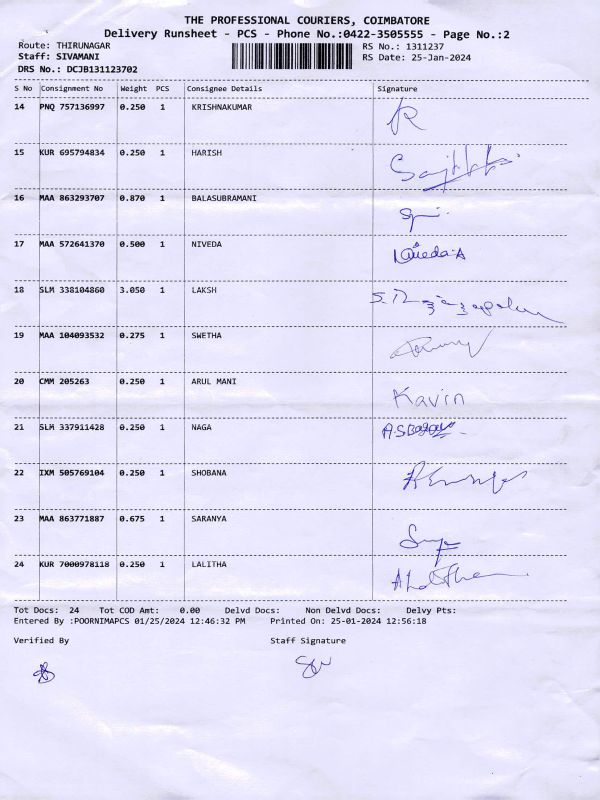 THE PROFESSIONAL COURIERS, COIMBATORE
Delivery Runsheet - PCS - Phone No.:0422-3505555 - Page No.:2
Route: THIRUNAGAR RS No.: 1311237
Staff: SIVAMANI RS Date: 25-Jan-2024
DRS No.: DCJB131123702
S No Consignment No Weight PCS Consignee Details Signature
14 PNQ 757136997 0.250 1 KRISHNAKUMAR
15 KUR 695794834 0.250 1 HARISH
16 MAA 863293707 0.870 1 BALASUBRAMANI
17 MAA 572641370 0.500 1 NIVEDA
18 SLM 338104860 3.050 1 LAKSH
19 MAA 104093532 0.275 1 SWETHA
20 CMM 205263 0.250 1 ARUL MANI Kavin
21 SLM 337911428 0.250 1 NAGA
22 IXM 505769104 0.250 1 SHOBANA
23 MAA 863771887 0.675 1 SARANYA
24 KUR 7000978118 0.250 1 LALITHA
Tot Docs: 24 Tot COD Amt: 0.00 Delvd Docs: Non Delvd Docs: Delvy Pts:
Entered By :POORNIMAPCS 01/25/2024 12:46:32 PM Printed On: 25-01-2024 12:56:18
Verified By Staff Signature